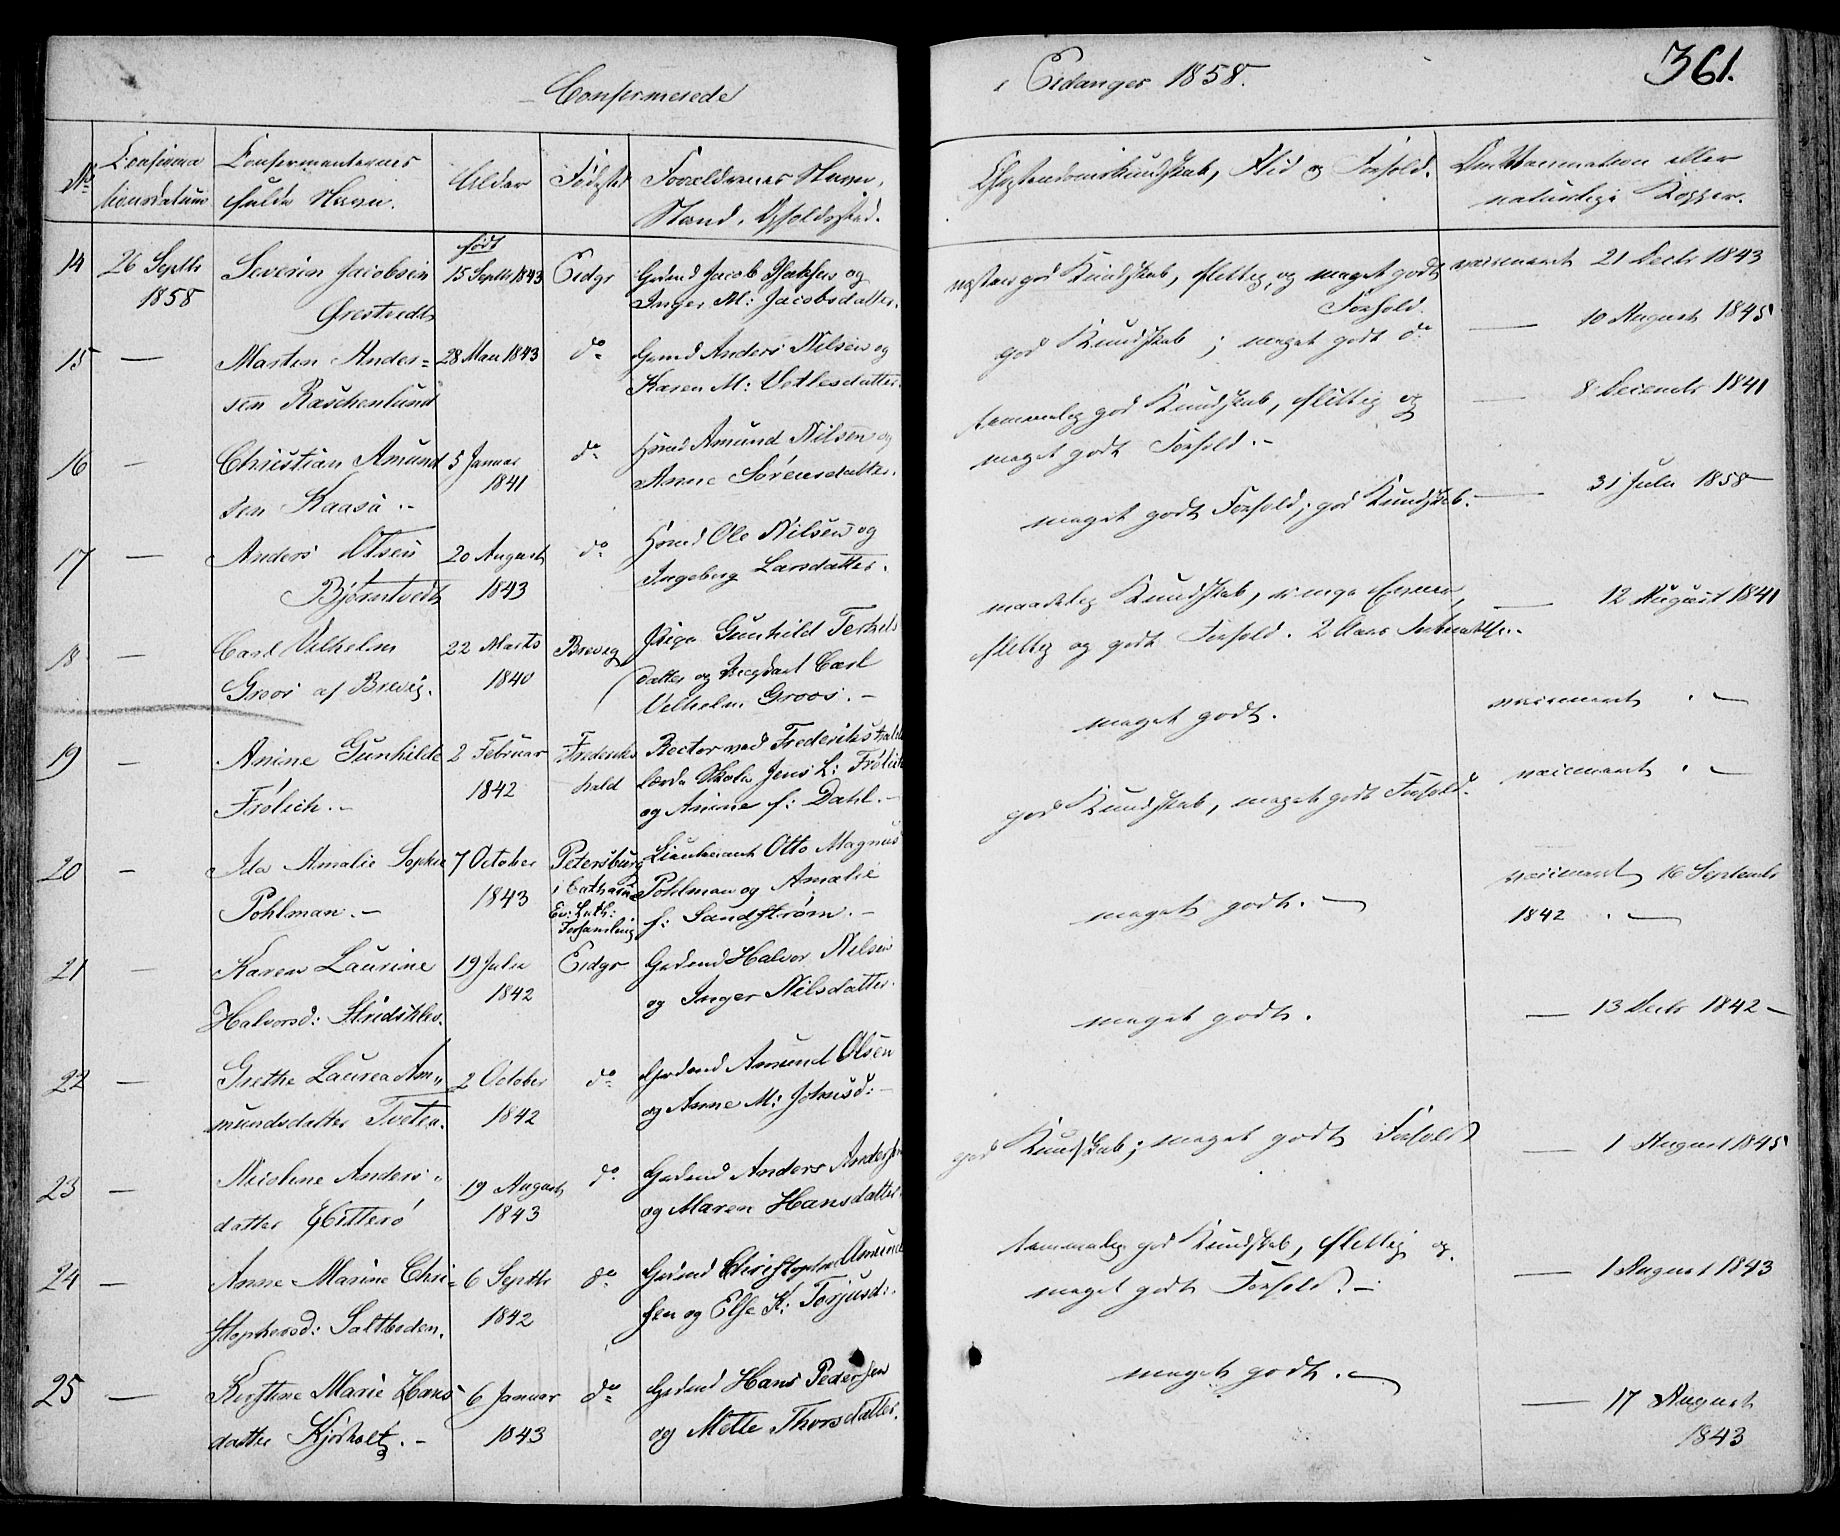 Confirmerede
i Eidanger 1858.
361.
No.
Confirma
tionsdatum
Confirmanternes
fulde Navn.
Alder
Fødested
Forældrenes Navn,
Stand, Opholdssted.
Christendomskundskab, Flid og Forhold.
Om Vaccination eller
naturlige Kopper.
14
26 Septbr
1858
Severin Jacobsen
Ørstvedt
født
15 Septbr 1843
Eidgr
Grdmd Jacob og
Inger M: Jacobsdatter.
næsten god Kundskab, flittig og meget godt
Forhold.
vaccineret 21 Decbr 1843
15
—
Marten Ander=
sen Raschenlund
28 Mai 1843
do
Anders Nilsen og
Karen M: Vetlesdatter.
god Kundskab; meget godt do
— 10 August 1845
16
—
Christian Amund
sen Kaasa.-
5 Januar
1841
do
Hmd Amund Nilsen og
Anne Sørensdatter.
temmelig god Kundskab, flittig og
meget godt Forhold.-
— 8 Decembr 1841
17
—
Anders Olsen
Bjørntvedt
20 August
1843
do
Hmd Ole Nilsen og
Ingeborg Larsdatter.
meget godt Forhold, god Kundskab.
— 31 Juli 1858
18
—
Carl Vilhelm
Groos af Brevig.
22 Marts
1840
Brevig
Pige Gunhild Terkels
datter og Carl
Vilhelm Groos.-
maadelig Kundskab, ringe Evner,
flittig og godt Forhold. 2 Aars
— 12 August 1841
19
—
Anine Gunhilde
Frølich.-
2 Februar
1842
Frederiks
hald
Rector ved Frederikshalds
lærde Skole Jens L: Frølich
og Anine f: Dahl.-
meget godt.
vaccineret . —
20
—
Ida Amalie Sophie
Pohlman.-
7 October
1843
Petersburg
i Catharine
Ev: Luth:
Forsamling
Lieutenant Otto Magnus
Pohlman og Amalie
f: Sandstrøm.-
god Kundskab, meget godt Forhold.
vaccineret . —
21
—
Karen Laurine
Halvorsd: Stridsklev.
19 Julie
1842
Eidgr
Grdmd Halvor Nilsen
og Inger Nilsdatter.
meget godt. —
vaccineret 16 Septembr
1842 . —
22
—
Grethe Laurea Am=
mundsdatter Tveten.
2 October
1842
do
Grdmd Amund Olsen
og Anne M: Johnsd:-
meget godt.
— 13 Decbr 1842 —
23
—
Nicoline Anders=
datter Hitterø
19 August
1843
do
Grdmd Anders Andersen
og Maren Hansdatter
god Kundskab; meget godt Forhold
— 1 August 1845
24
—
Anne Marine Chri=
stophersd: Saltboden.
6 Septbr
1842
do
Grdmd Christopher Amund
sen og Else K: Torjusd:.
temmelig god Kundskab, flittig og
meget godt Forhold.-
— 1 August 1843
25
—
Kirstine Marie Hans
datter Kjørholt.-
6 Januar
1843
do
Grdmd Hans Pedersen
og Mette Thorsdatter.
meget godt. —
— 17 August
1843